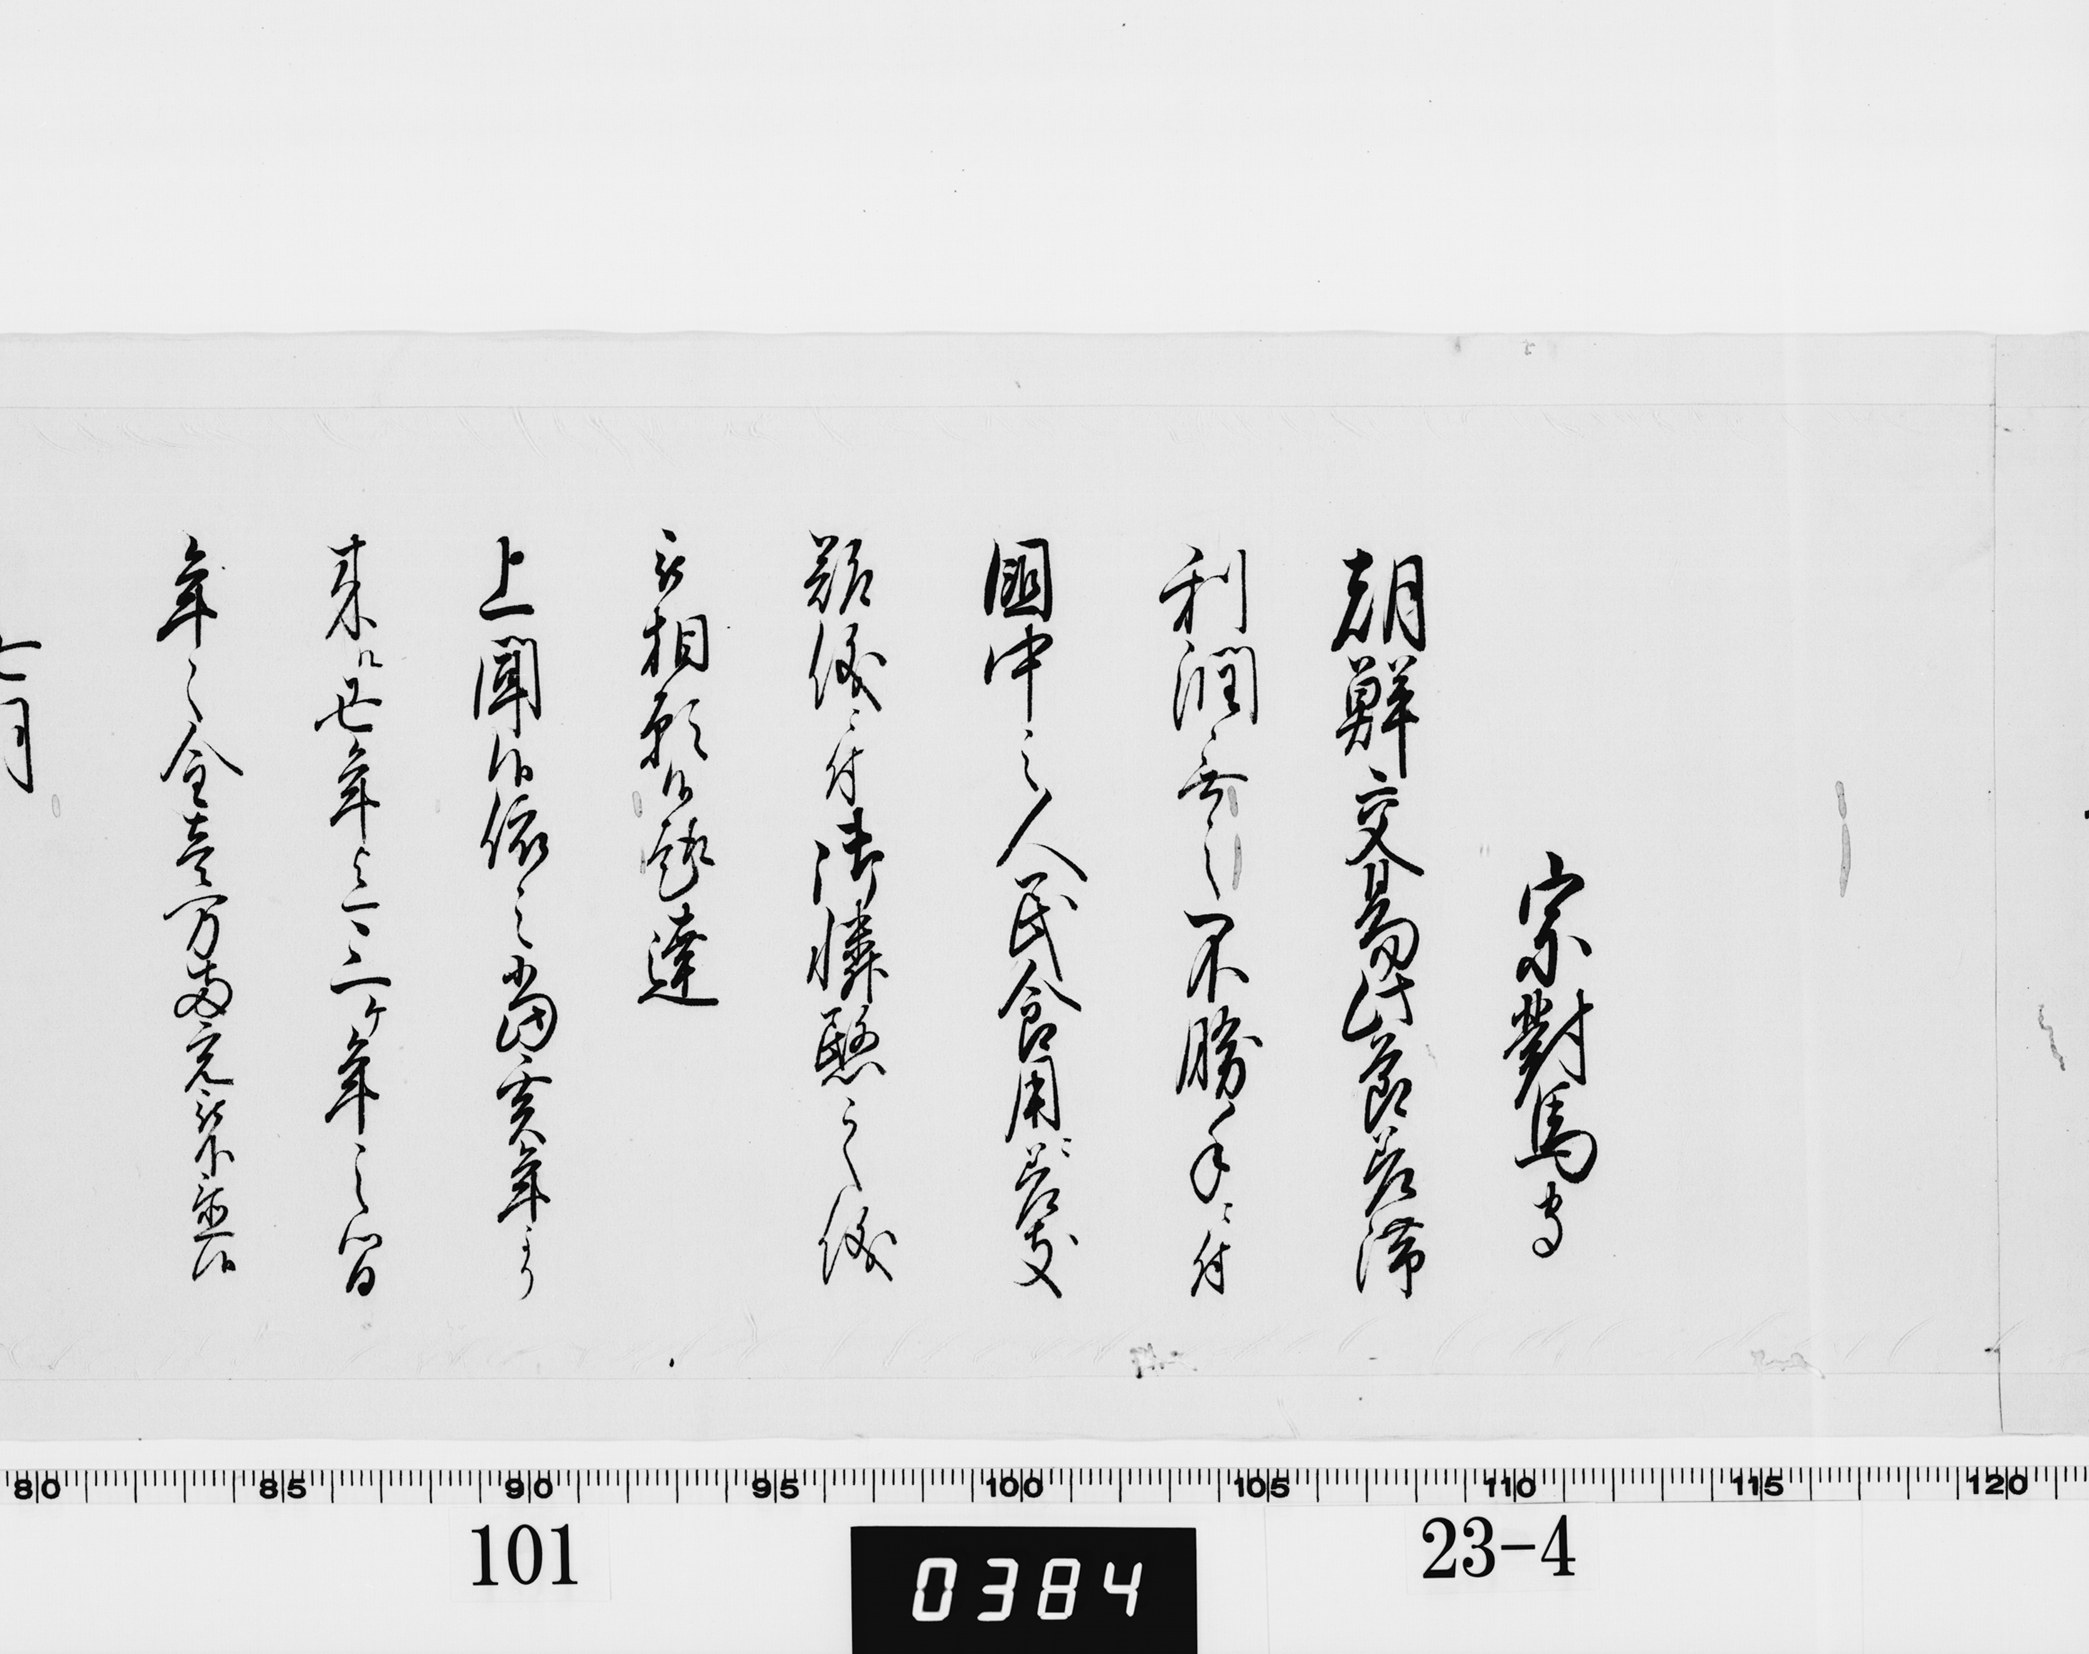 宗對馬守
朝鮮交易此節差滞
利潤無之不勝手ニ付
國中之人民食用ニ差支
難儀ニ付御憐愍之儀
被相願候趣達
上聞候依之當亥年より
来ル丑年迄三ケ年之間
年々金壱万両充被下置候
七月
80 85 90 95 100 105 110 115 120
101
0384
23-4